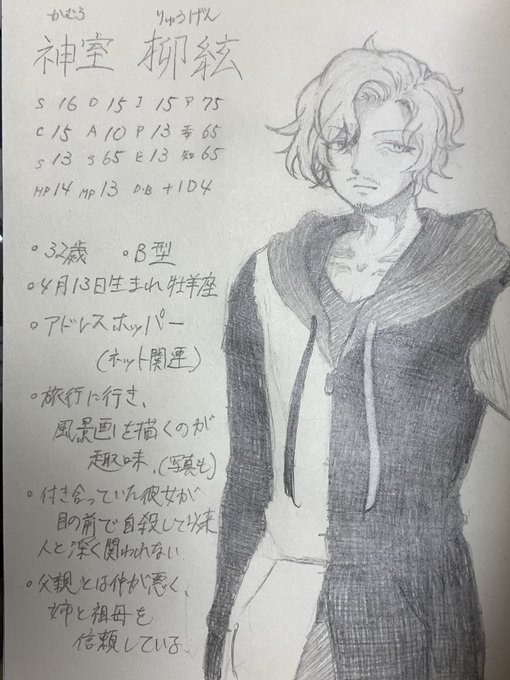 かむろ りゅうげん
神室 柳絃
S 16 D 15 I 15 ア 75
C 15 A 10 P 13 幸 65
S 13 S 65 E 13 知 65
HP 14 MP 13 D.B +1D4
・32歳 ・B型
・4月13日生まれ 牡羊座
・アドレスホッパー
(ネット関連)
・旅行に行き、
風景画を描くのが
趣味.(写真も)
・付き合っていた彼女が
目の前で自殺して以来
人と深く関われない
・父親とは仲が悪く、
姉と祖母を
信頼している.